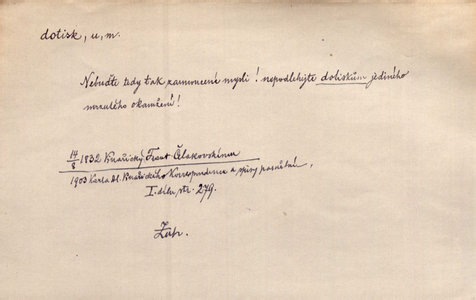 dotisk, u, m.
Nebuďte tedy tak zarmoucené mysli! nepodlehejte dotiskům jediného
mrzutého okamžení!
14/8 1832 Vinařický Frant. Čelakovskému
1903 Karla Al. Vinařického Korrespondence a spisy pamětní,
I. dílu str. 279.
Zub.